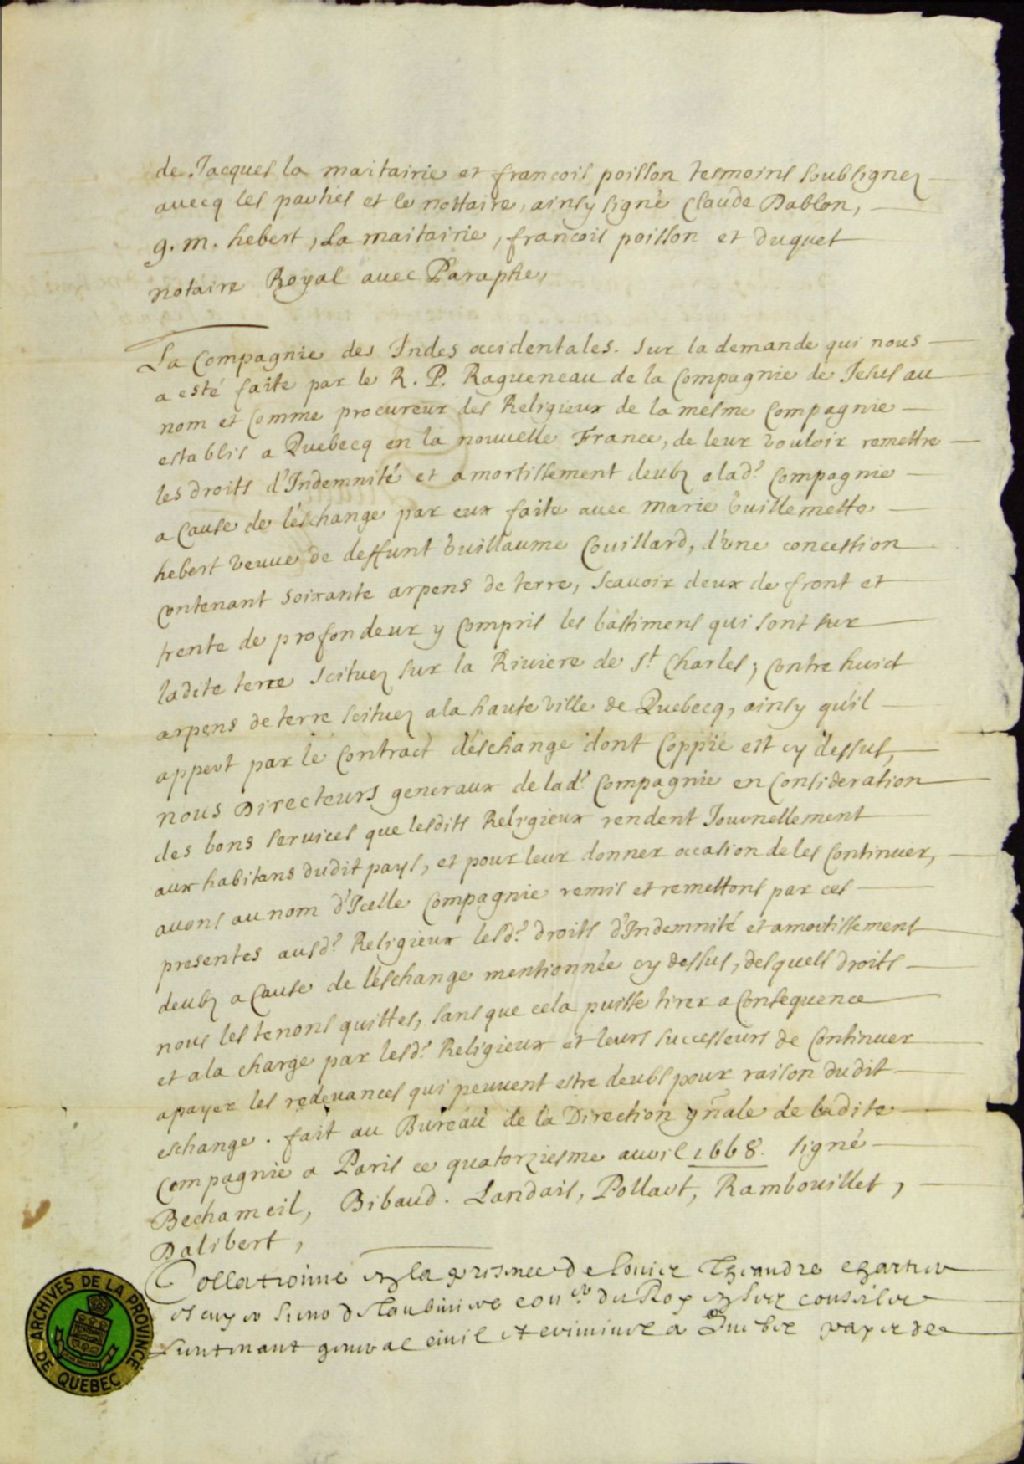 de Jacques la maitairie et francois poisson tesmoins soubsignez
avecq les parties et le nottaire, ainsy signé Claude Dablon,
g. m. hebert, la maitairie, francois poisson et duquet
notaire Royal avec Paraphe,
La Compagnie des Indes occidentales. Sur la demande qui nous
a esté faite par le R. P. Ragueneau de la Compagnie de Jesus au
nom et comme procureur des Religieux de la mesme Compagnie
establis a Quebecq en la nouvelle France, de leur vouloir remettre
les droits d'Indemnité et amortissement deubz a lad.e Compagnie
a cause de l'eschange par eux faite avec marie Guillemette
hebert veuve de deffunt Guillaume Couillard, d'une concession
contenant soixante arpens de terre, scavoir deux de front et
trente de profondeur y compris les bastimens qui sont sur
ladite terre scituez sur la Riviere de St Charles, contre huict
arpens de terre scituez a la haute ville de Quebecq, ainsy qu'il
appert par le Contract d'eschange dont Coppie est cy dessus,
nous Directeurs generaux de lad.e Compagnie en Consideration
des bons services que lesdits Religieux rendent Journellement
aux habitans dudit pays, et pour leur donner occasion de les Continuer,
avons au nom d'Icelle Compagnie remis et remettons par ces
presentes ausd.s Religieux lesd.s droits d'Indemnité et amortissement
deubz a Cause de l'eschange mentionnée cy dessus, desquels droits
nous les tenons quittes, sans que cela puisse tirer a Consequence
et a la charge par lesd.s Religieux et leurs successeurs de Continuer
a payer les redevances qui peuvent estre deubs pour raison dudit
eschange. fait au Bureau de la Direction gñale de ladite
Compagnie a Paris ce quatorziesme avril 1668. signé
Bechameil, Bibaud. Landais, Pollart, Rambouillet,
Dalibert,
Collationné en la presence de Louis Theandre Chartier
Escuyer sieur de Lotbiniere con.er du Roy et son conseiller
Lieutenant general civil et criminel a Quebec
ARCHIVES DE LA PROVINCE DE QUEBEC